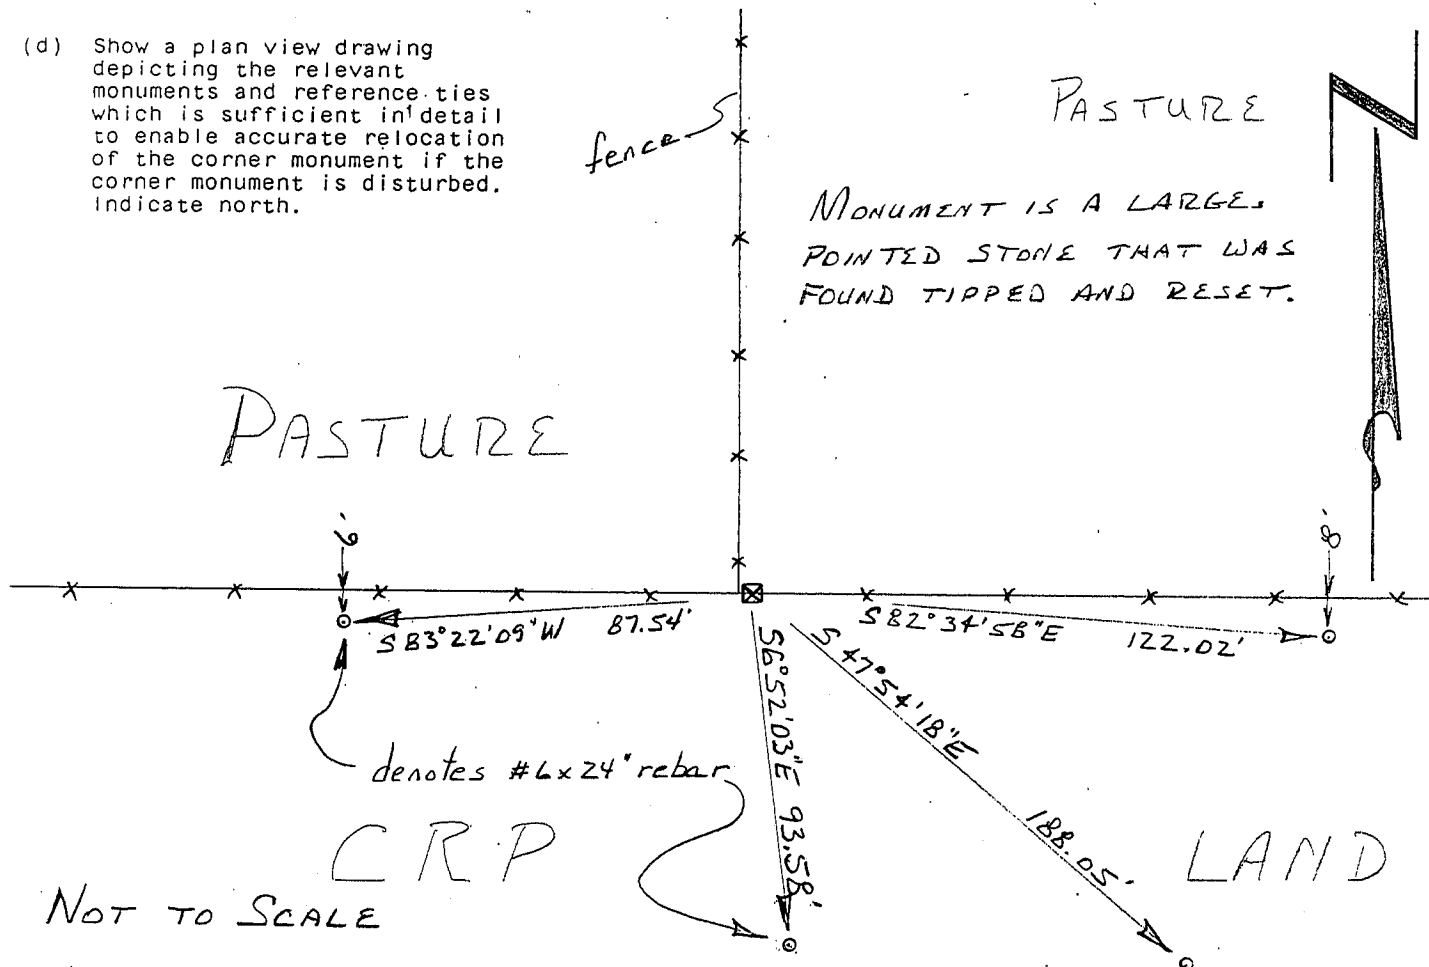 (d) Show a plan view drawing
depicting the relevant
monuments and reference ties
which is sufficient in detail
to enable accurate relocation
of the corner monument if the
corner monument is disturbed.
Indicate north.
fence
PASTURE
MONUMENT IS A LARGE,
POINTED STONE THAT WAS
FOUND TIPPED AND RESET.
PASTURE
9'
8'
S 83°22'09"W 87.54'
S 82°34'58"E 122.02'
S6°52'03"E 93.58'
S 47°54'18"E 188.05'
denotes #6x24" rebar
CRP LAND
NOT TO SCALE